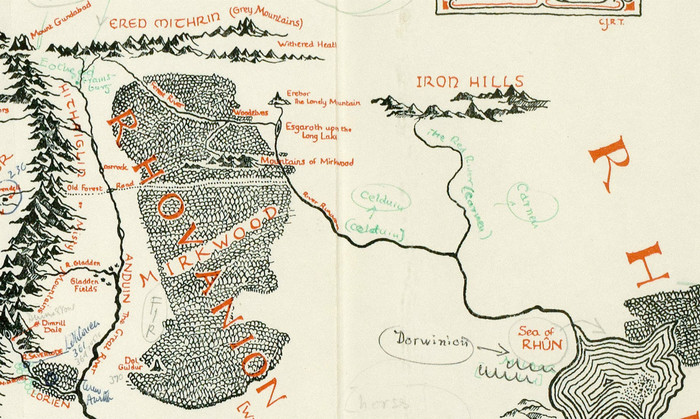 Mount Gundabad
ERED MITHRIN (Grey Mountains)
C.J.R.T.
Withered Heath
Forest River
Woodelves
Erebor
The Lonely Mountain
IRON HILLS
Esgaroth upon the
Long Lake
Mountains of Mirkwood
Old Forest Road
River Running
Celduin
(Celduin)
The Red River (Carnen)
Carnen
RHOVANION
MIRKWOOD
R
H
R. Gladden
Gladden
Fields
Misty Mountains
ANDUIN The Great River
Dimrill
Dale
Dol
Guldur
LORIEN
Dorwinion
Sea of
RHÛN
horse